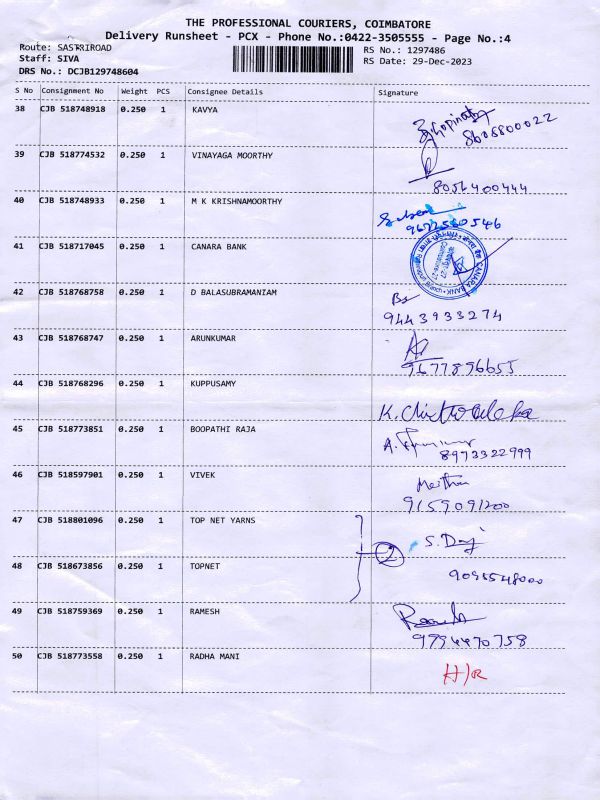 THE PROFESSIONAL COURIERS, COIMBATORE
Delivery Runsheet - PCX - Phone No.:0422-3505555 - Page No.:4
Route: SASTRIROAD
RS No.: 1297486
Staff: SIVA
RS Date: 29-Dec-2023
DRS No.: DCJB129748604
S No Consignment No Weight PCS Consignee Details Signature
38 CJB 518748918 0.250 1 KAVYA
Gopinath
8608800022
39 CJB 518774532 0.250 1 VINAYAGA MOORTHY
8056400444
40 CJB 518748933 0.250 1 M K KRISHNAMOORTHY
41 CJB 518717045 0.250 1 CANARA BANK
CANARA BANK
42 CJB 518768758 0.250 1 D BALASUBRAMANIAM
9443933274
43 CJB 518768747 0.250 1 ARUNKUMAR
9677896655
44 CJB 518768296 0.250 1 KUPPUSAMY
45 CJB 518773851 0.250 1 BOOPATHI RAJA
8973322999
46 CJB 518597901 0.250 1 VIVEK
9159091200
47 CJB 518801096 0.250 1 TOP NET YARNS
2
48 CJB 518673856 0.250 1 TOPNET
49 CJB 518759369 0.250 1 RAMESH
9994470758
50 CJB 518773558 0.250 1 RADHA MANI
H/R